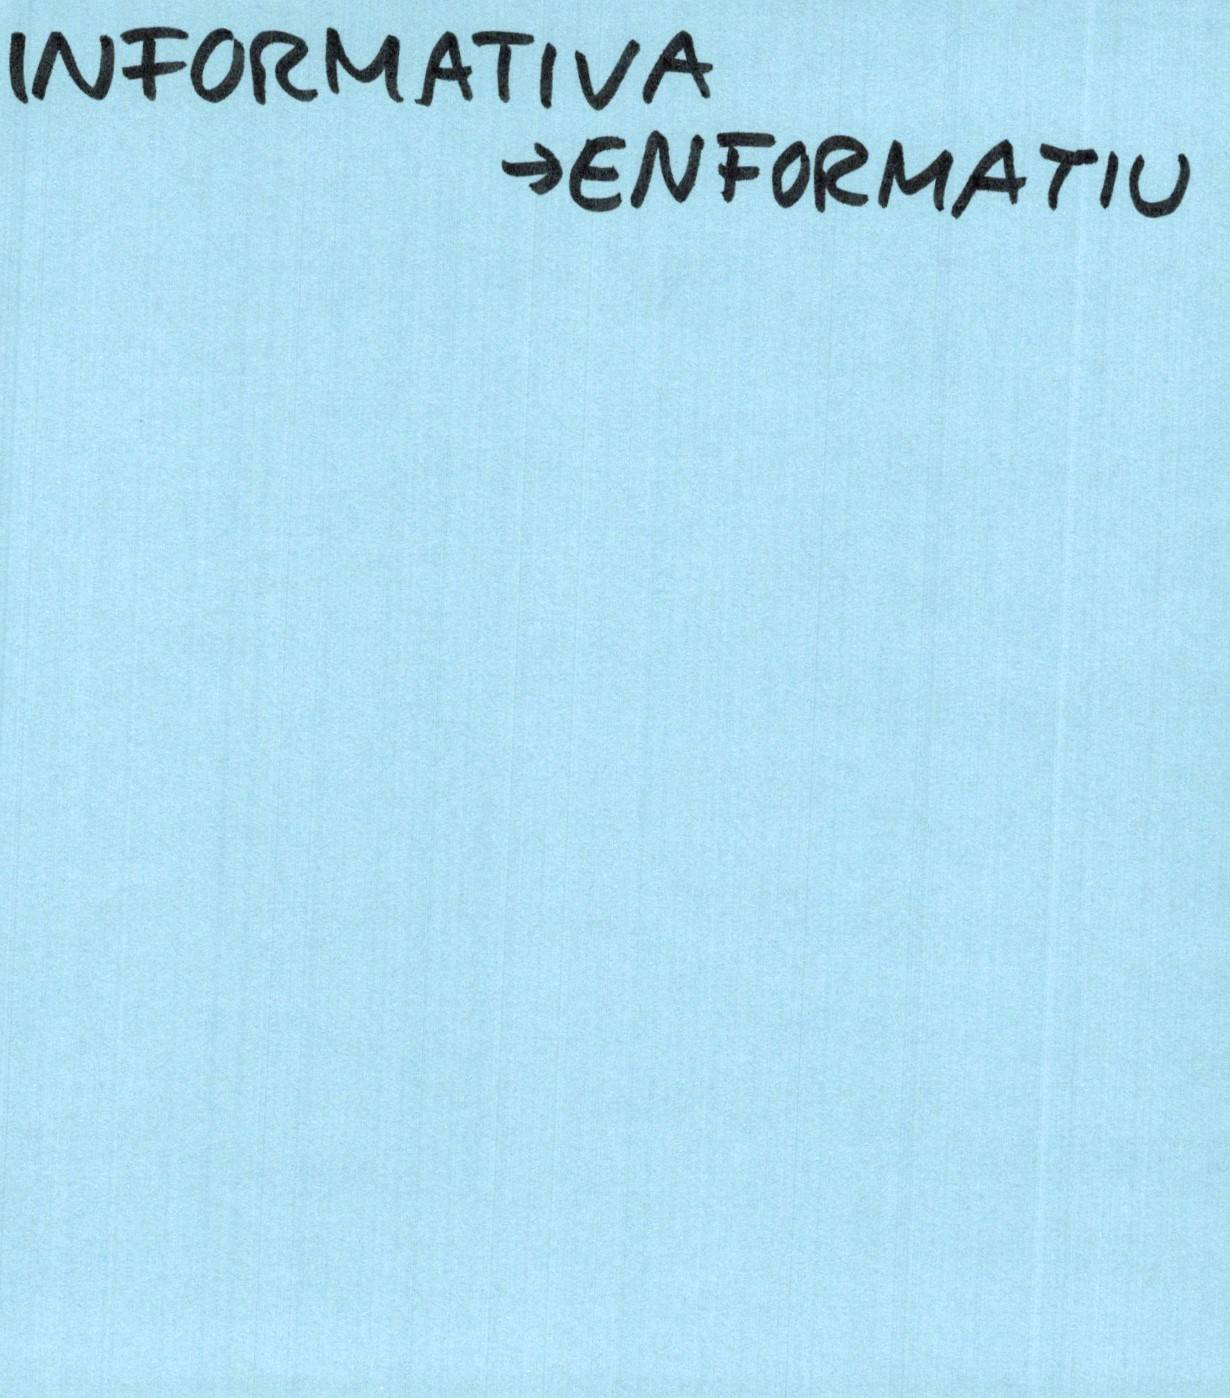 INFORMATIVA
→ENFORMATIU